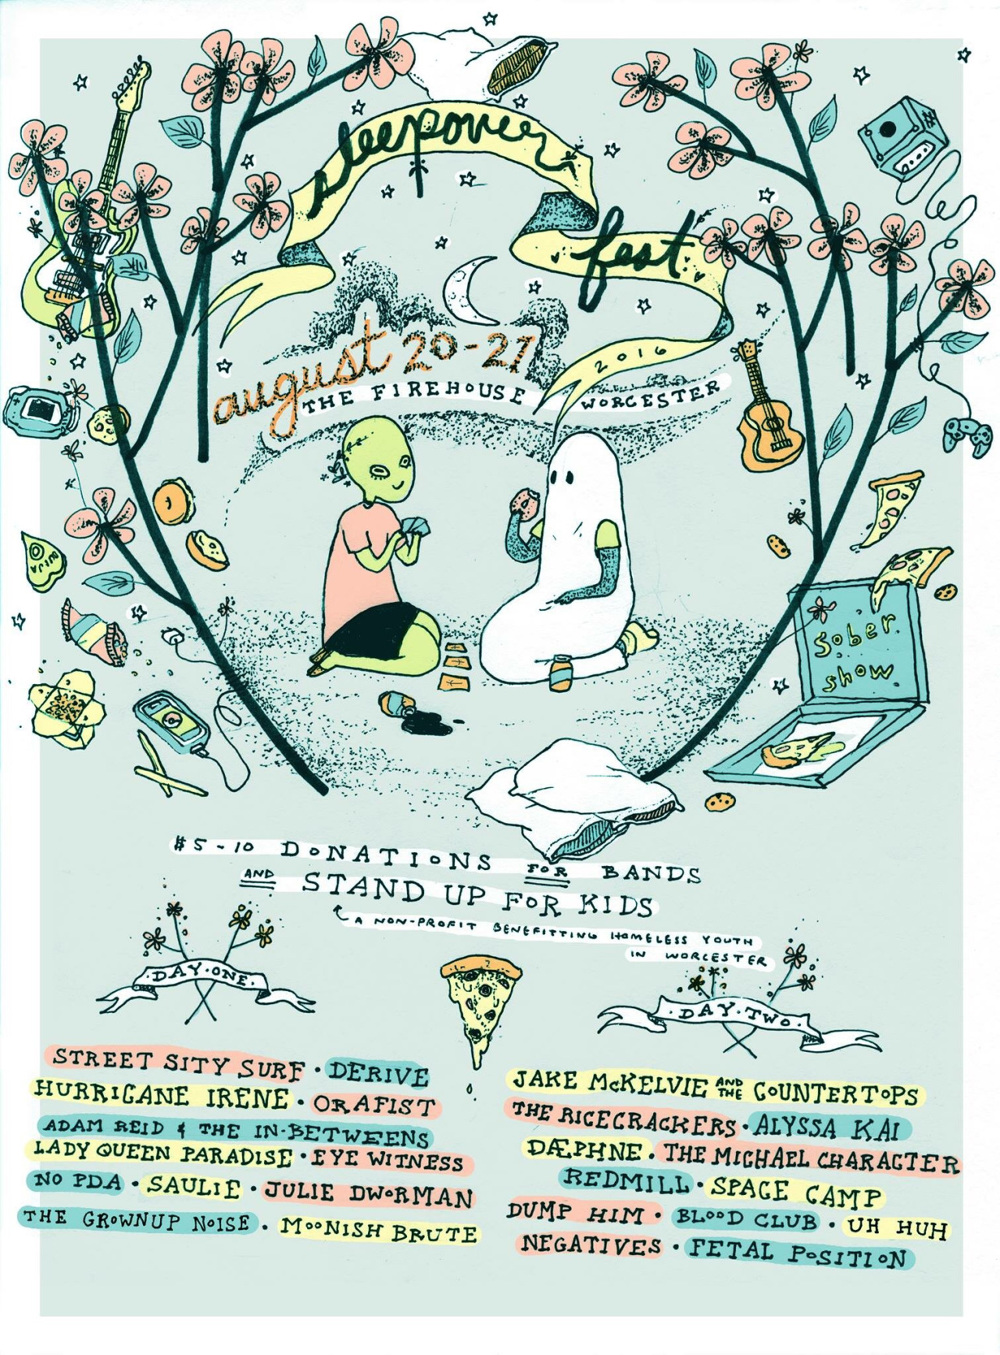 sleepover
fest
2016
august 20-21
THE FIREHOUSE WORCESTER
OUIJA
sober
show
$5-10 DONATIONS FOR BANDS
AND STAND UP FOR KIDS
A NON-PROFIT BENEFITTING HOMELESS YOUTH
IN WORCESTER
·DAY·ONE·
STREET SITY SURF · DERIVE
HURRICANE IRENE · ORAFIST
ADAM REID & THE IN-BETWEENS
LADY QUEEN PARADISE · EYE WITNESS
NO PDA · SAULIE · JULIE DWORMAN
THE GROWNUP NOISE · MOONISH BRUTE
·DAY·TWO·
JAKE McKELVIE AND THE COUNTERTOPS
THE RICECRACKERS · ALYSSA KAI
DÆPHNE · THE MICHAEL CHARACTER
REDMILL · SPACE CAMP
DUMP HIM · BLOOD CLUB · UH HUH
NEGATIVES · FETAL POSITION